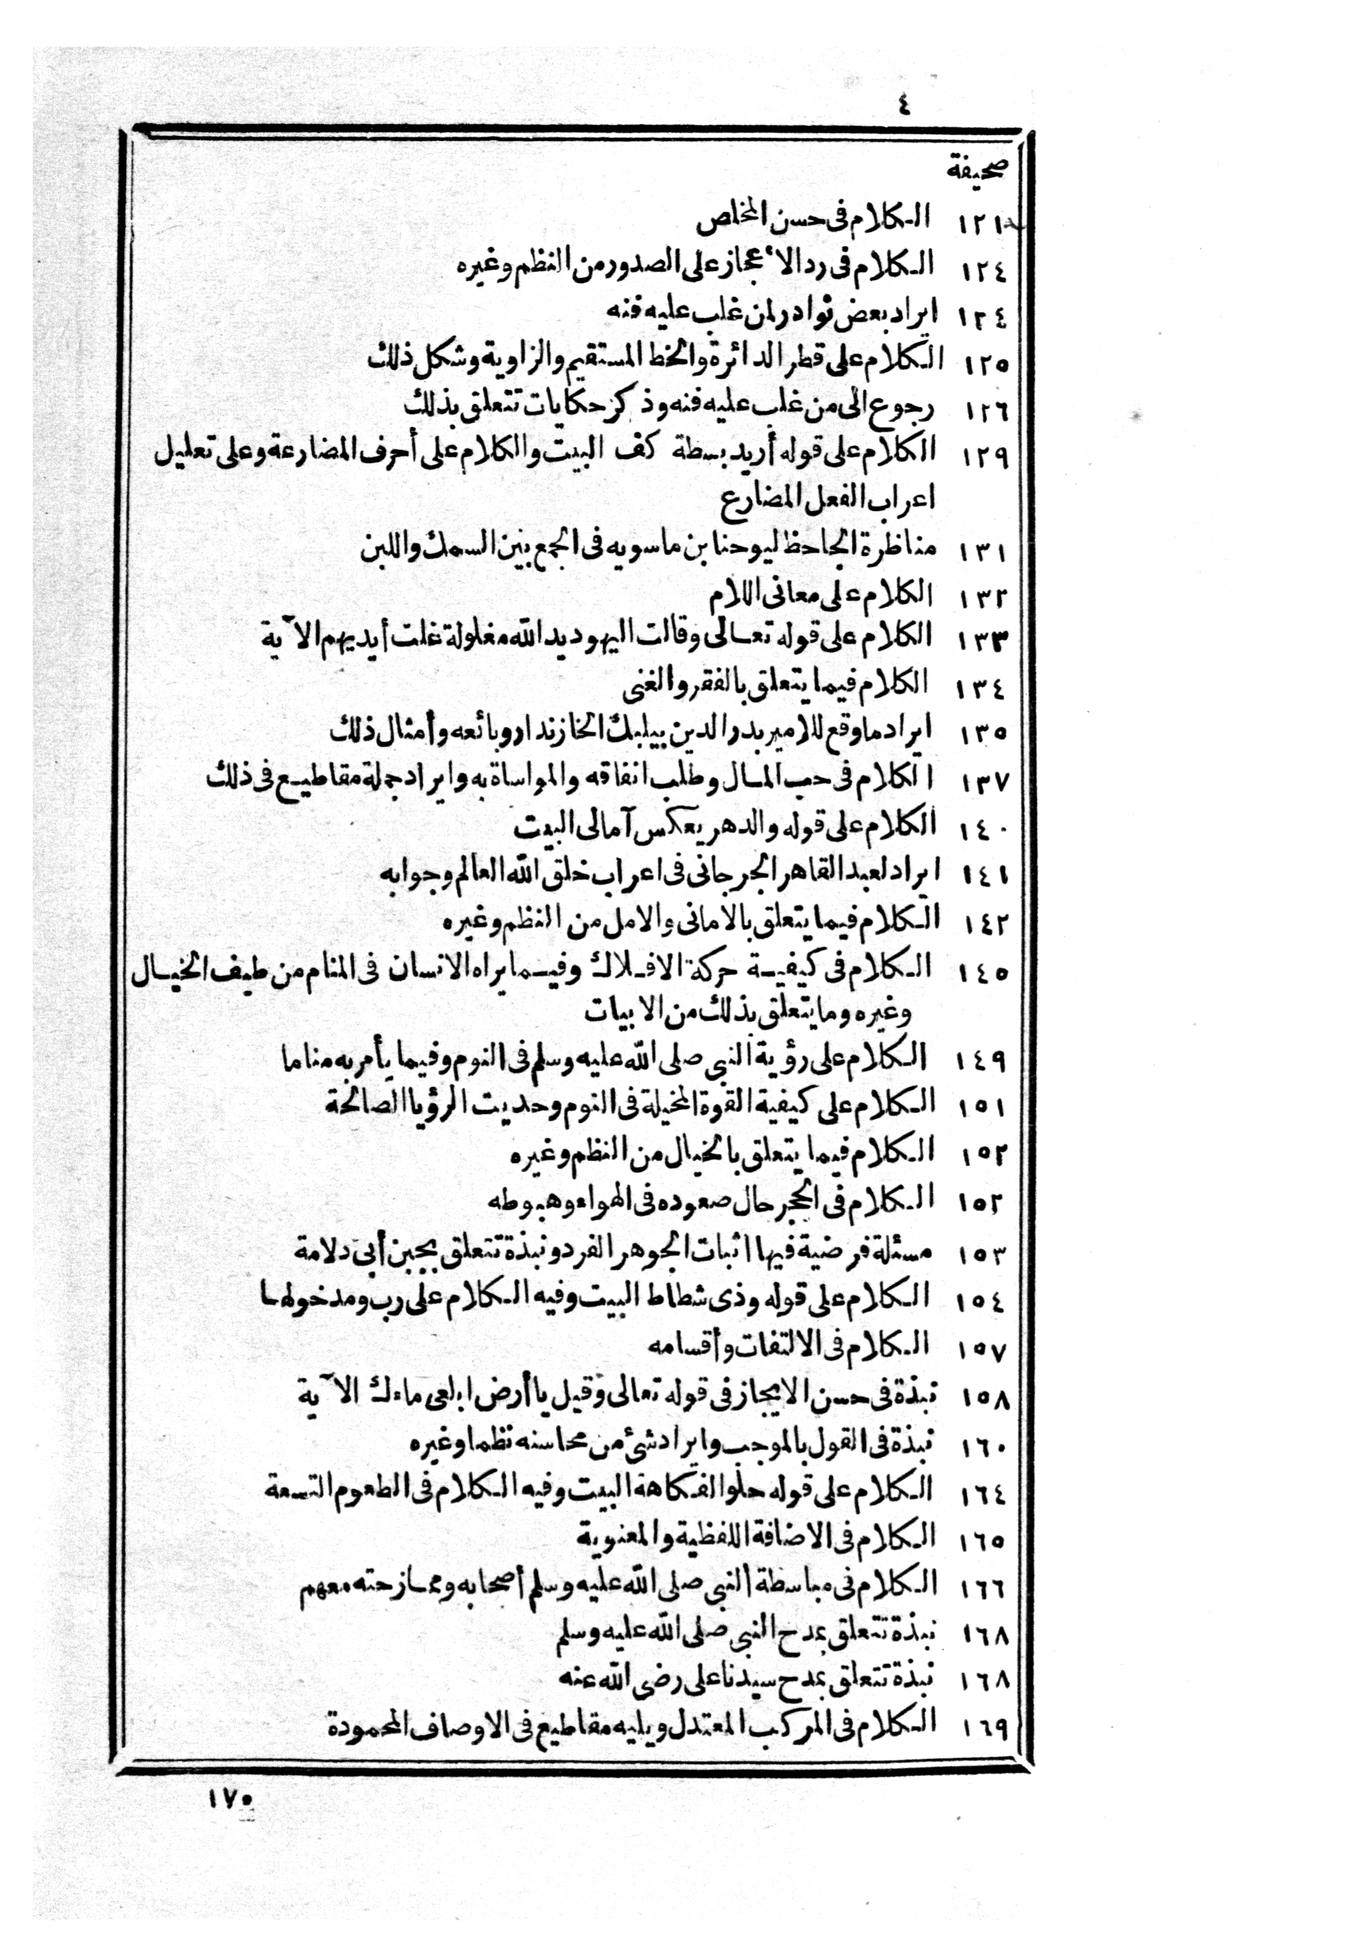 ٤
صحيفة
١٢١ الكلام فى حسن المخلص
١٢٤ الكلام فى رد الأعجاز على الصدور من النظم وغيره
١٢٤ ايراد بعض نوادر لمن غلب عليه فنه
١٢٥ الكلام على قطر الدائرة والخط المستقيم والزاوية وشكل ذلك
١٢٦ رجوع الى من غلب عليه فنه وذكر حكايات تتعلق بذلك
١٢٩ الكلام على قوله أريد بسطة كف البيت والكلام على أحرف المضارعة وعلى تعليل
اعراب الفعل المضارع
١٣١ مناظرة الجاحظ ليوحنا بن ماسويه فى الجمع بين السمك واللبن
١٣٢ الكلام على معانى اللام
١٣٣ الكلام على قوله تعالى وقالت اليهود يد الله مغلولة غلت أيديهم الآية
١٣٤ الكلام فيما يتعلق بالفقر والغنى
١٣٥ ايراد ما وقع للامير بدر الدين بيلبك الخازندار وبائعه وأمثال ذلك
١٣٧ الكلام فى حب المال وطلب انفاقه والمواساة به وايراد جملة مقاطيع فى ذلك
١٤٠ الكلام على قوله والدهر يعكس آمالى البيت
١٤١ ايراد لعبد القاهر الجرجانى فى اعراب خلق الله العالم وجوابه
١٤٢ الكلام فيما يتعلق بالامانى والامل من النظم وغيره
١٤٥ الكلام فى كيفية حركة الافلاك وفيما يراه الانسان فى المنام من طيف الخيال
وغيره وما يتعلق بذلك من الابيات
١٤٩ الكلام على رؤية النبى صلى الله عليه وسلم فى النوم وفيما يأمر به مناما
١٥١ الكلام على كيفية القوة المخيلة فى النوم وحديث الرؤيا الصالحة
١٥٢ الكلام فيما يتعلق بالخيال من النظم وغيره
١٥٢ الكلام فى الحجر حال صعوده فى الهواء وهبوطه
١٥٣ مسئلة فرضية فيها اثبات الجوهر الفرد ونبذة تتعلق بجبن أبى دلامة
١٥٤ الكلام على قوله وذى شطاط البيت وفيه الكلام على رب ومدخولها
١٥٧ الكلام فى الالتفات وأقسامه
١٥٨ نبذة فى حسن الايجاز فى قوله تعالى وقيل يا أرض ابلعى ماءك الآية
١٦٠ نبذة فى القول بالموجب وايراد شئ من محاسنه نظما وغيره
١٦٤ الكلام على قوله حلو الفكاهة البيت وفيه الكلام فى الطعوم التسعة
١٦٥ الكلام فى الاضافة اللفظية والمعنوية
١٦٦ الكلام فى مباسطة النبى صلى الله عليه وسلم أصحابه وممازحته معهم
١٦٨ نبذة تتعلق بمدح النبى صلى الله عليه وسلم
١٦٨ نبذة تتعلق بمدح سيدنا على رضى الله عنه
١٦٩ الكلام فى المركب المعتدل ويليه مقاطيع فى الاوصاف المحمودة
١٧٠